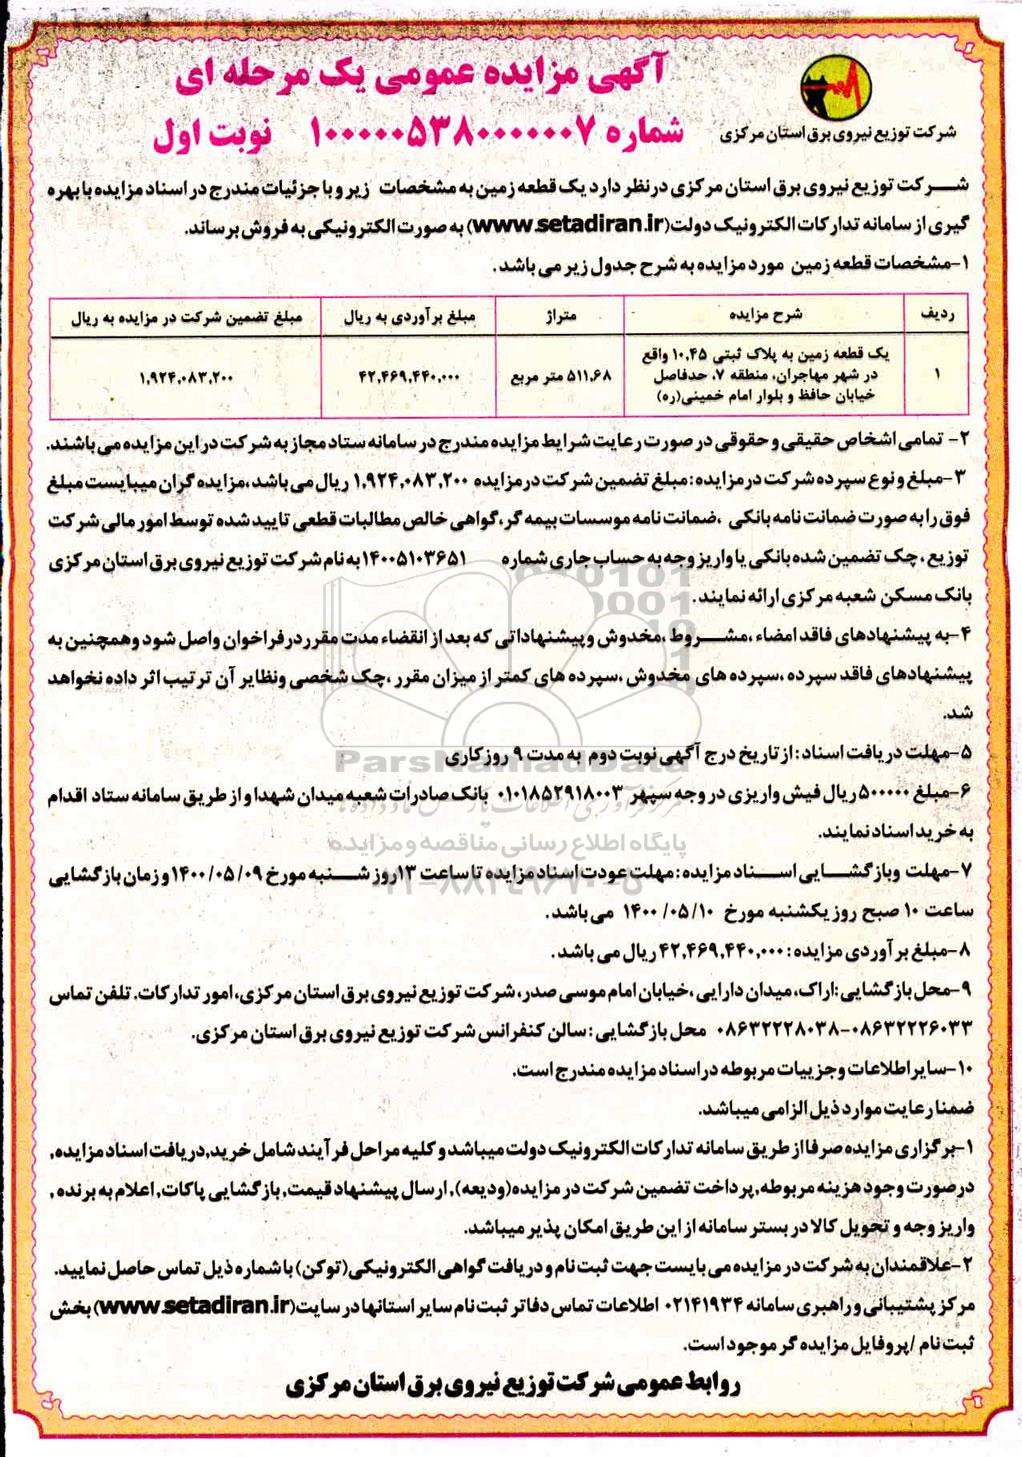 آگهی مزایده عمومی یک مرحله ای
شماره ۱۰۰۰۰۰۵۳۸۰۰۰۰۰۰۷ نوبت اول
شرکت توزیع نیروی برق استان مرکزی
شرکت توزیع نیروی برق استان مرکزی درنظر دارد یک قطعه زمین به مشخصات زیر و با جزئیات مندرج در اسناد مزایده با بهره
گیری از سامانه تدارکات الکترونیک دولت (www.setadiran.ir) به صورت الکترونیکی به فروش برساند.
۱-مشخصات قطعه زمین مورد مزایده به شرح جدول زیر می باشد.
ردیف شرح مزایده متراژ مبلغ برآوردی به ریال مبلغ تضمین شرکت در مزایده به ریال
۱ یک قطعه زمین به پلاک ثبتی ۱۰،۴۵ واقع
در شهر مهاجران، منطقه ۷، حدفاصل
خیابان حافظ و بلوار امام خمینی(ره)
۵۱۱،۶۸ متر مربع ۴۲،۴۶۹،۴۴۰،۰۰۰ ۱،۹۲۴،۰۸۳،۲۰۰
۲- تمامی اشخاص حقیقی و حقوقی در صورت رعایت شرایط مزایده مندرج در سامانه ستاد مجاز به شرکت در این مزایده می باشند.
۳-مبلغ و نوع سپرده شرکت در مزایده: مبلغ تضمین شرکت در مزایده ۱،۹۲۴،۰۸۳،۲۰۰ ریال می باشد، مزایده گران میبایست مبلغ
فوق را به صورت ضمانت نامه بانکی ، ضمانت نامه موسسات بیمه گر، گواهی خالص مطالبات قطعی تایید شده توسط امور مالی شرکت
توزیع ، چک تضمین شده بانکی یا واریز وجه به حساب جاری شماره ۱۴۰۰۵۱۰۳۶۵۱ به نام شرکت توزیع نیروی برق استان مرکزی
بانک مسکن شعبه مرکزی ارائه نمایند.
۴-به پیشنهادهای فاقد امضاء ، مشروط ، مخدوش و پیشنهاداتی که بعد از انقضاء مدت مقرر در فراخوان واصل شود وهمچنین به
پیشنهادهای فاقد سپرده ، سپرده های مخدوش ، سپرده های کمتر از میزان مقرر ، چک شخصی ونظایر آن ترتیب اثر داده نخواهد
شد.
۵-مهلت دریافت اسناد : از تاریخ درج آگهی نوبت دوم به مدت ۹ روز کاری
ParsNamadData
۶-مبلغ ۵۰۰۰۰۰ ریال فیش واریزی در وجه سپهر ۰۱۰۱۸۵۲۹۱۸۰۰۳ بانک صادرات شعبه میدان شهدا و از طریق سامانه ستاد اقدام
به خرید اسناد نمایند.
پایگاه اطلاع رسانی مناقصه و مزایده
۷-مهلت وبازگشایی اسناد مزایده : مهلت عودت اسناد مزایده تا ساعت ۱۳ روز شنبه مورخ ۱۴۰۰/۰۵/۰۹ و زمان بازگشایی
ساعت ۱۰ صبح روز یکشنبه مورخ ۱۴۰۰/۰۵/۱۰ می باشد.
۸-مبلغ برآوردی مزایده: ۴۲،۴۶۹،۴۴۰،۰۰۰ ریال می باشد.
۹-محل بازگشایی: اراک، میدان دارایی ، خیابان امام موسی صدر، شرکت توزیع نیروی برق استان مرکزی، امور تدارکات. تلفن تماس
۰۸۶۳۲۲۲۶۰۳۳-۰۸۶۳۲۲۲۸۰۳۸ محل بازگشایی : سالن کنفرانس شرکت توزیع نیروی برق استان مرکزی.
۱۰-سایر اطلاعات وجزییات مربوطه در اسناد مزایده مندرج است.
ضمنا رعایت موارد ذیل الزامی میباشد.
۱-برگزاری مزایده صرفا از طریق سامانه تدارکات الکترونیک دولت میباشد و کلیه مراحل فرآیند شامل خرید, دریافت اسناد مزایده,
درصورت وجود هزینه مربوطه, پرداخت تضمین شرکت در مزایده(ودیعه), ارسال پیشنهاد قیمت, بازگشایی پاکات, اعلام به برنده,
واریز وجه و تحویل کالا در بستر سامانه از این طریق امکان پذیر میباشد.
۲-علاقمندان به شرکت در مزایده می بایست جهت ثبت نام و دریافت گواهی الکترونیکی(توکن) با شماره ذیل تماس حاصل نمایید.
مرکز پشتیبانی و راهبری سامانه ۰۲۱۴۱۹۳۴ اطلاعات تماس دفاتر ثبت نام سایر استانها در سایت (www.setadiran.ir) بخش
ثبت نام /پروفایل مزایده گر موجود است.
روابط عمومی شرکت توزیع نیروی برق استان مرکزی